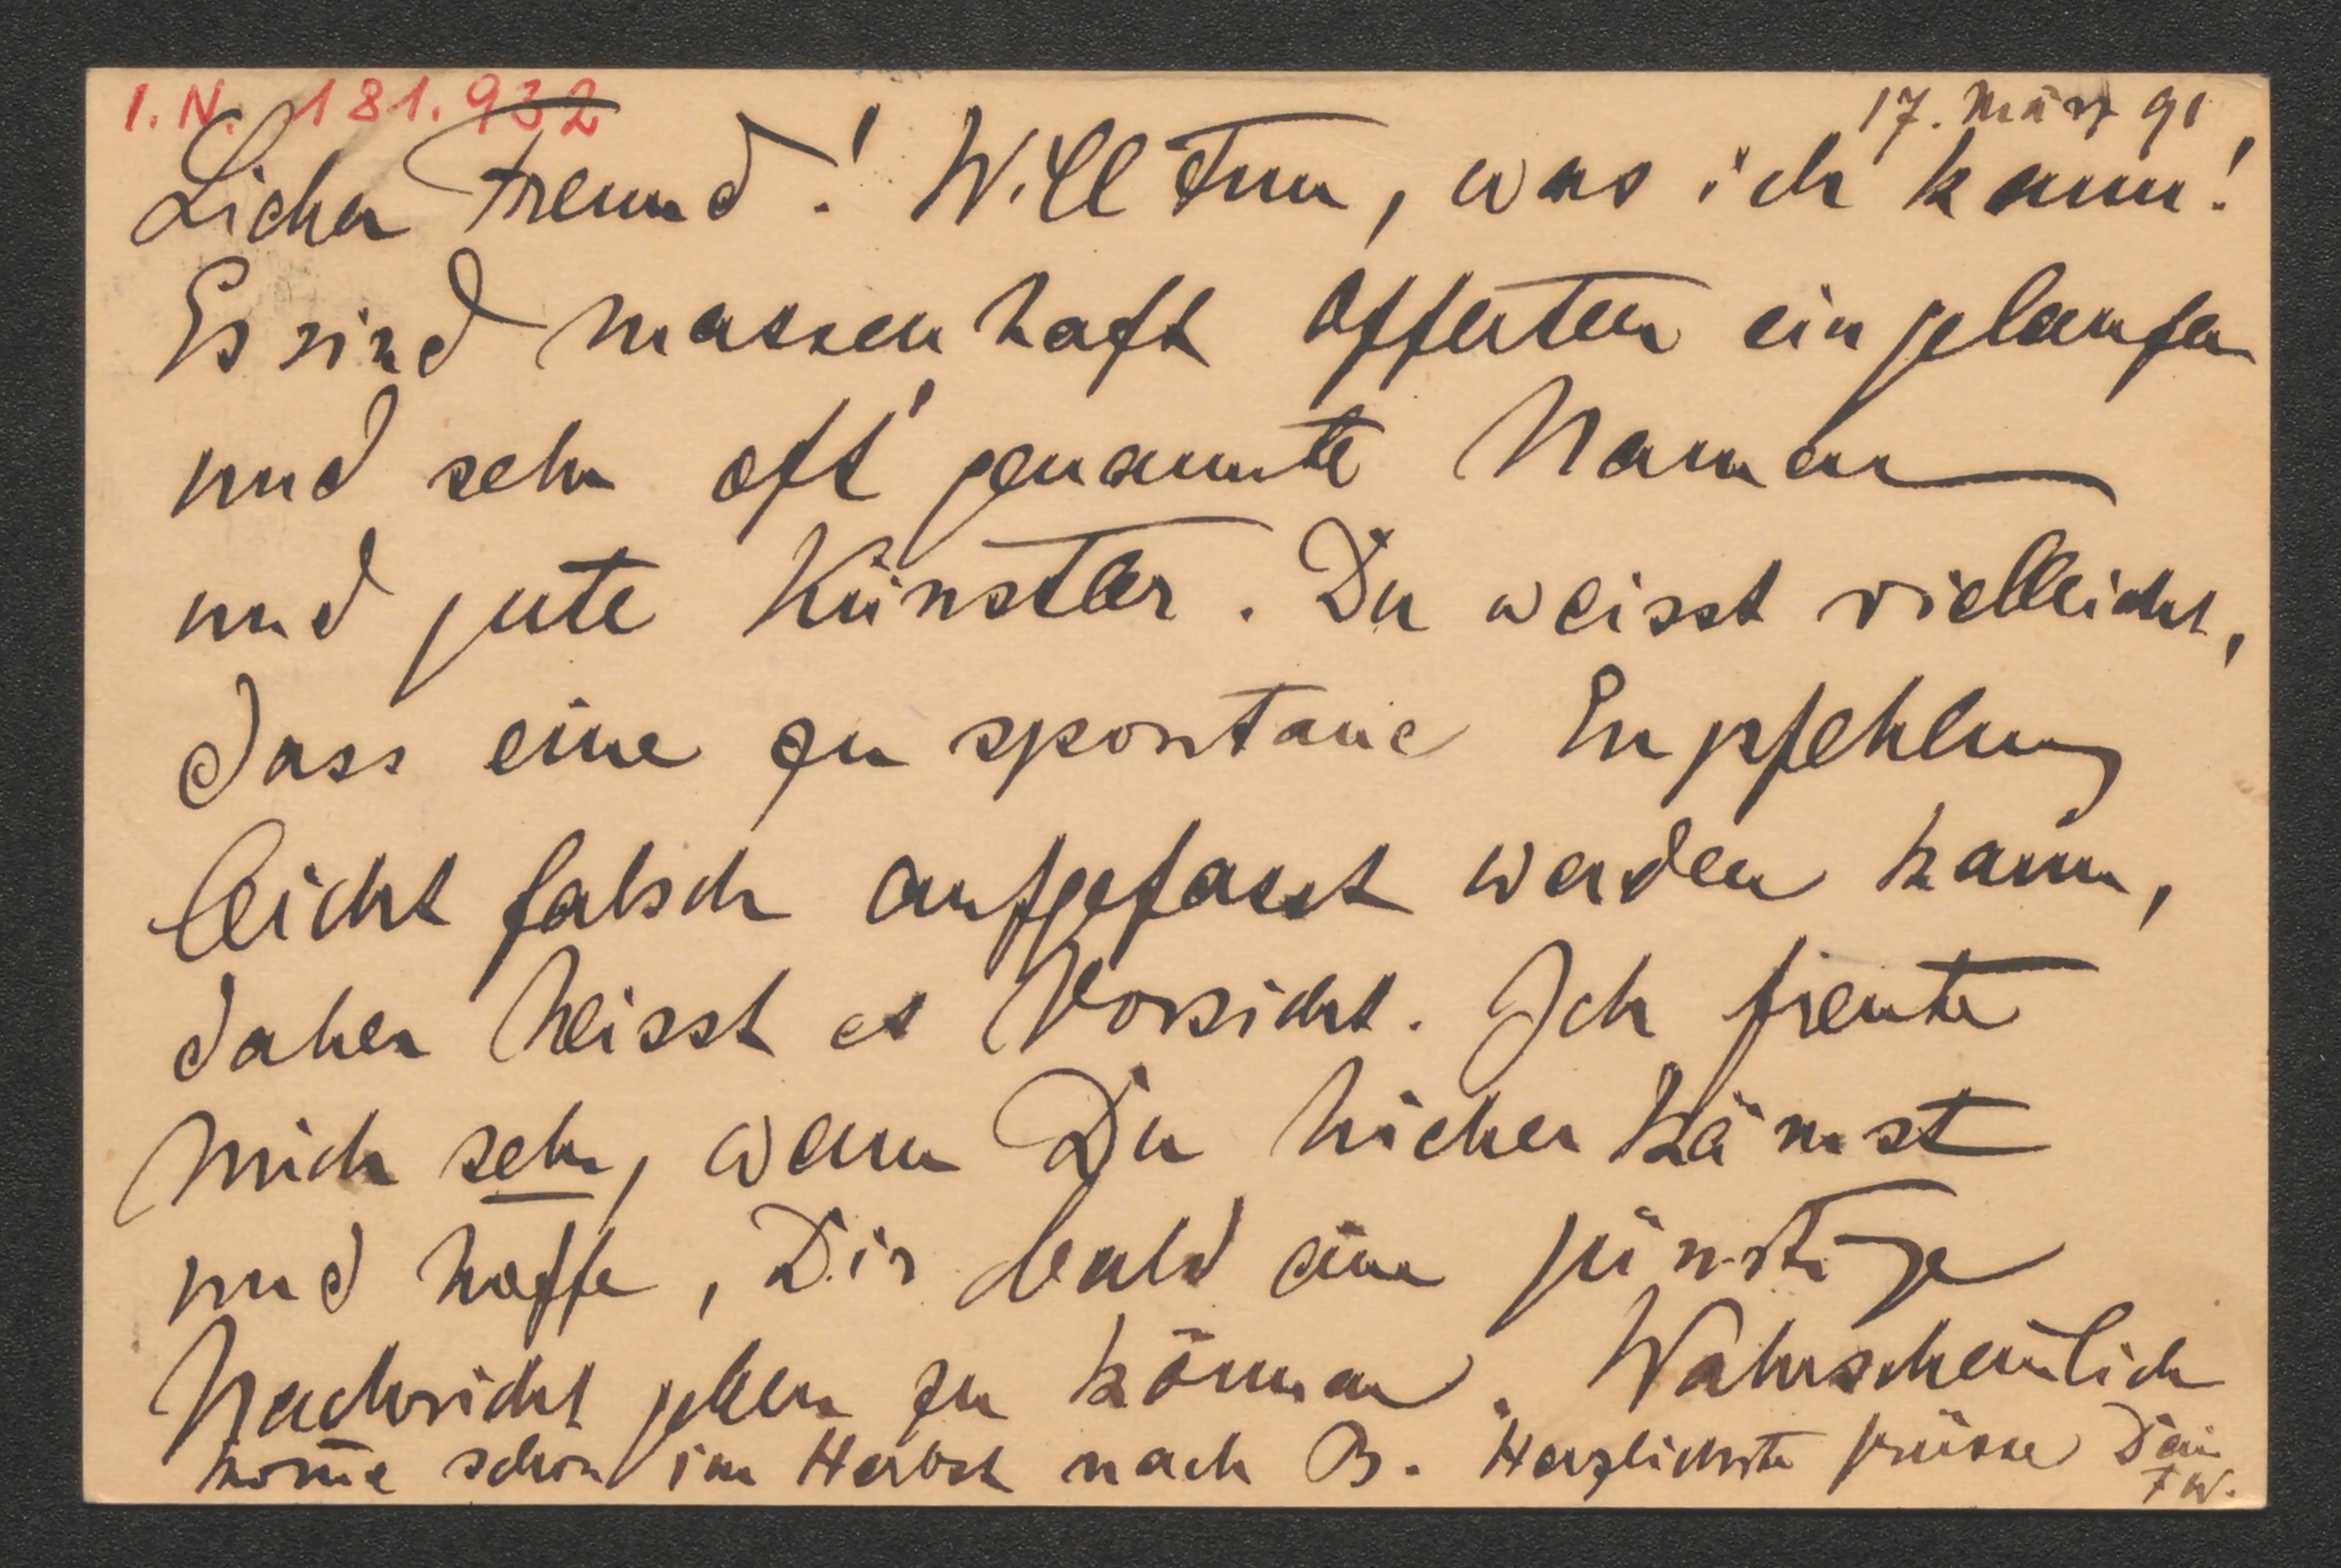 I.N. 181.932
17. März 91
Lieber Freund! Will tun, was ich kann!
Es sind massenhaft Offerten eingelaufen
und sehr oft genannte Namen
und gute Künstler. Du weisst vielleicht,
dass eine zu spontane Empfehlung
leicht falsch aufgefasst werden kann,
daher heisst es Vorsicht. Ich freute
mich sehr, wenn Du hieher kämst
und hoffe, Dir bald eine günstige
Nachricht geben zu können. Wahrscheinlich
kom̄e schon im Herbst nach B. Herzlichste Grüsse Dein
FW.